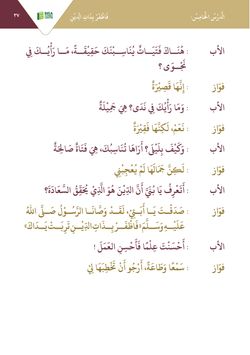 الدَّرْسُ الْخَامِسُ
فَاظْفَرْ بِذَاتِ الدِّينِ
٣٧
الأب : هُنَاكَ فَتَيَاتٌ يُنَاسِبْنَكَ حَقِيقَةً، مَا رَأْيُكَ فِي
نَجْوَى؟
فَوَّاز : إِنَّهَا قَصِيْرَةٌ
الأب : وَمَا رَأْيُكَ فِي نَدَى؟ هِيَ جَمِيْلَةٌ
فَوَّاز : نَعَمْ، لَكِنَّهَا فَقِيْرَةٌ
الأب : وَكَيْفَ بِلَيْلَى؟ أَرَاهَا تُنَاسِبُكَ، هِيَ فَتَاةٌ صَالِحَةٌ
فَوَّاز : لَكِنَّ جَمَالَهَا لَمْ يُعْجِبْنِي
الأب : أَتَعْرِفُ يَا بُنَيَّ أَنَّ الدِّيْنَ هُوَ الَّذِيْ يُحَقِّقُ السَّعَادَةَ؟
فَوَّاز : صَدَقْتَ يَا أَبَتِيْ، لَقَدْ وَصَّانَا الرَّسُوْلُ صَلَّى اللهُ
عَلَيْهِ وَسَلَّمَ «فَاظْفَرْ بِذَاتِ الدِّيْنِ تَرِبَتْ يَدَاكَ»
الأب : أَحْسَنْتَ عِلْمًا فَأَحْسِنِ العَمَلَ !
فَوَّاز : سَمْعًا وَطَاعَةً، أَرْجُو أَنْ تَخْطِبَهَا لِيْ